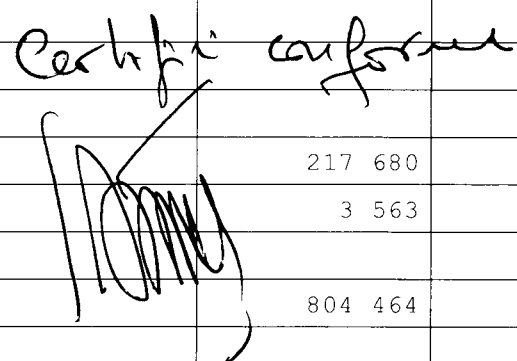 Certifié conforme
217 680
3 563
804 464